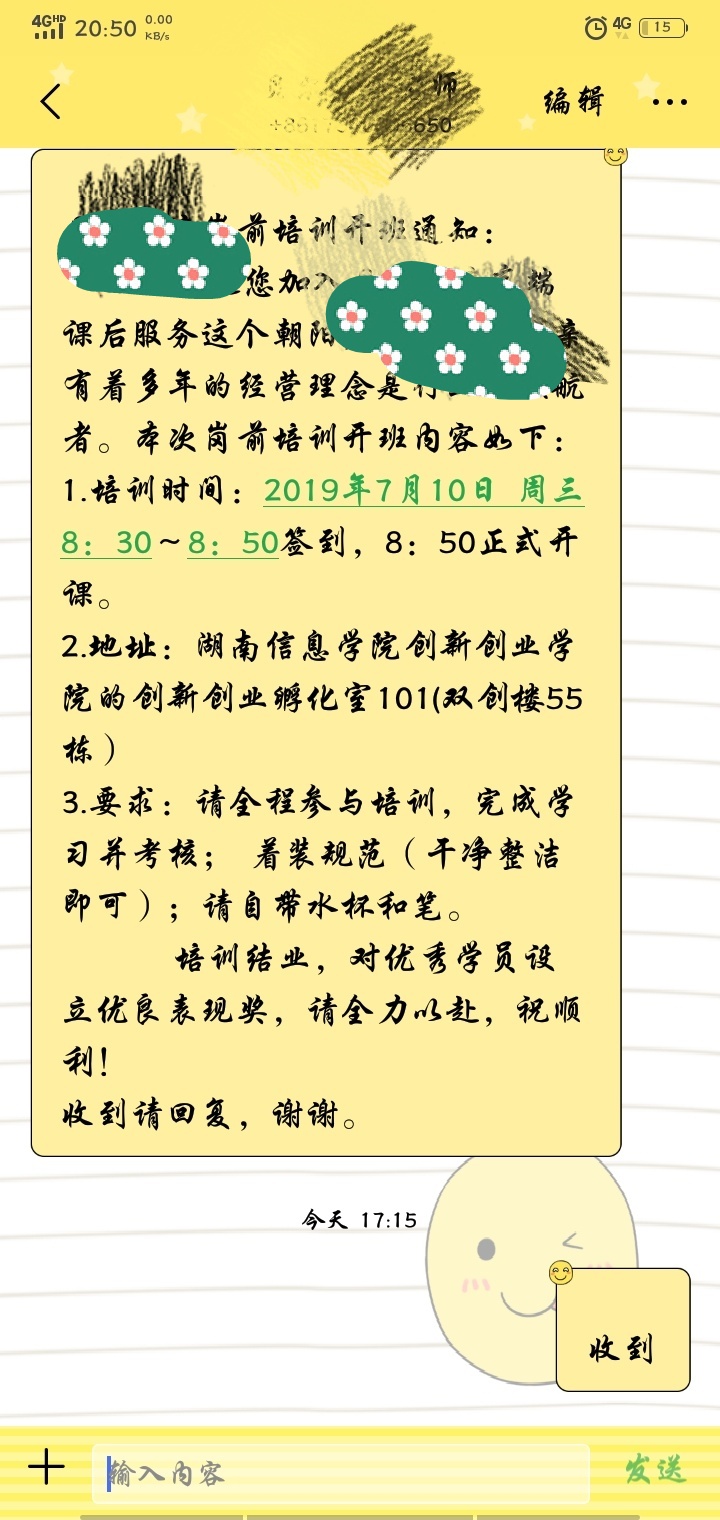 4G HD 20:50 0.00 KB/s 4G 15
师 编辑
650
岗前培训开班通知：
您加入 端
课后服务这个朝阳
有着多年的经营理念是行 航
者。本次岗前培训开班内容如下：
1.培训时间：2019年7月10日 周三
8：30～8：50签到，8：50正式开
课。
2.地址：湖南信息学院创新创业学
院的创新创业孵化室101(双创楼55
栋）
3.要求：请全程参与培训，完成学
习并考核； 着装规范（干净整洁
即可）；请自带水杯和笔。
培训结业，对优秀学员设
立优良表现奖，请全力以赴，祝顺
利！
收到请回复，谢谢。
今天 17:15
收到
输入内容 发送